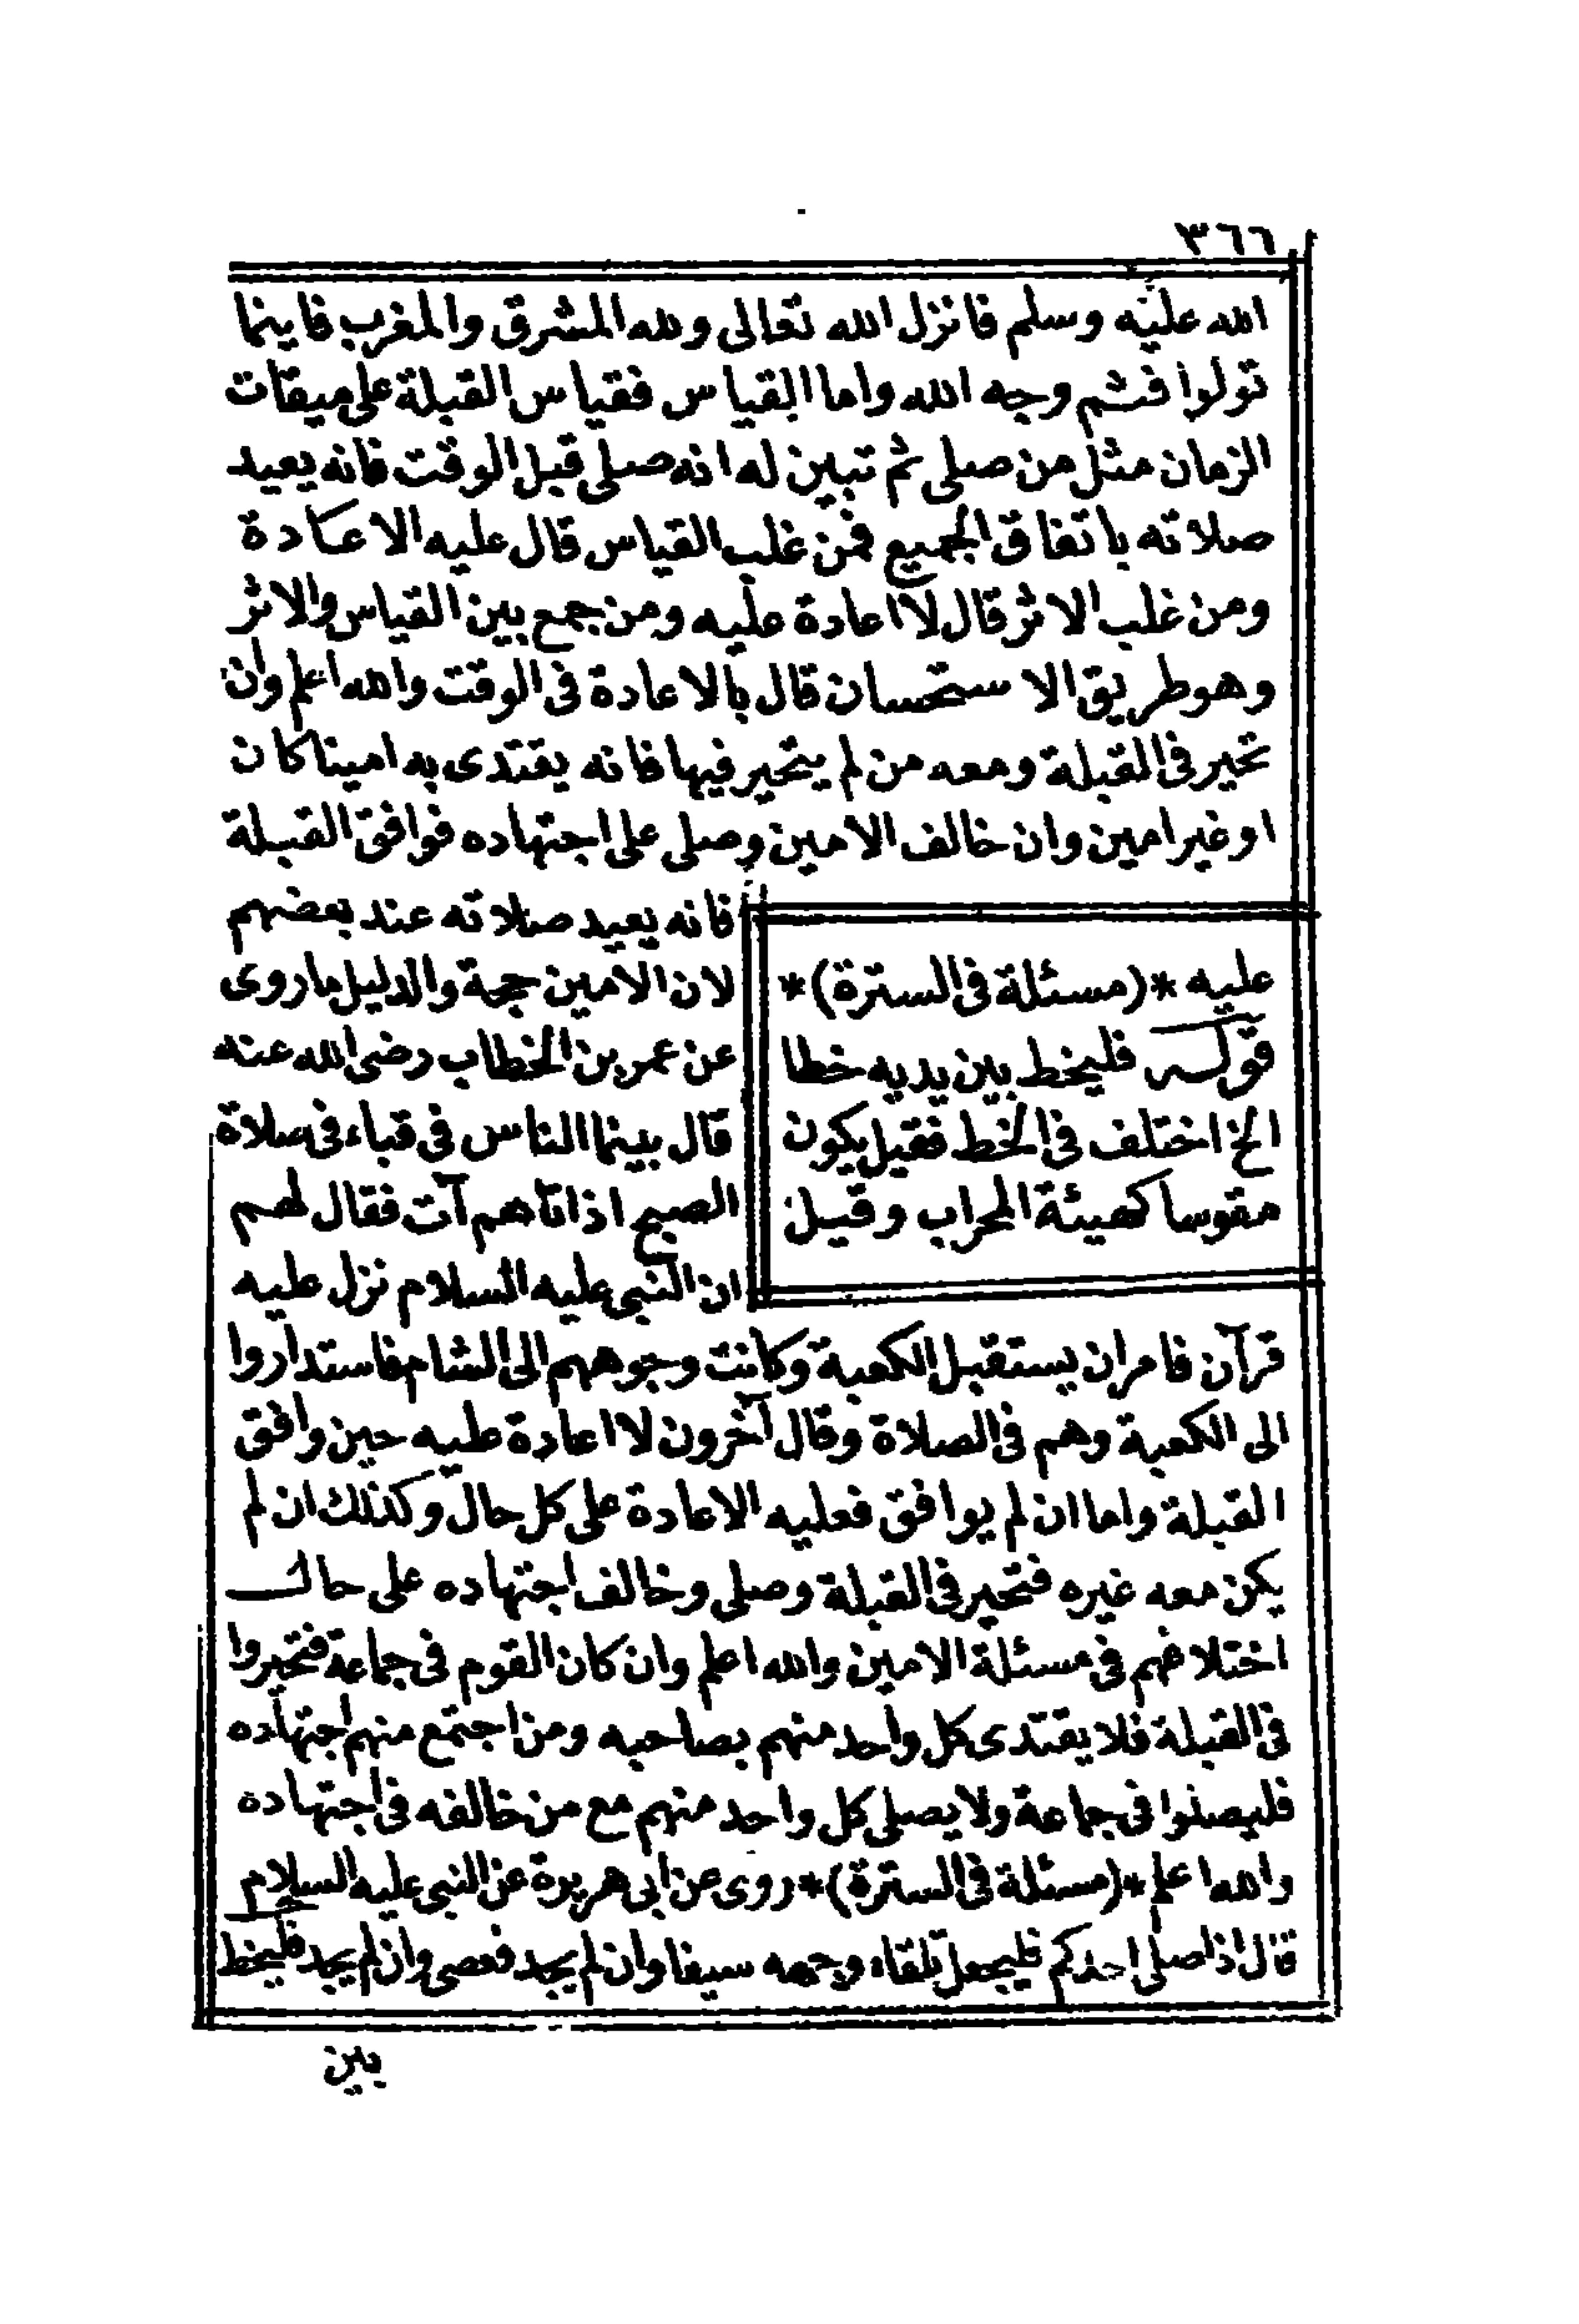 ٣٦٦
الله عليه وسلم فانزل الله تعالى ولله المشرق والمغرب فاينما
تولوا فثم وجه الله واما القياس فقياس القبلة على ميقات
الزمان مثل من صلى ثم تبين له انه صلى قبل الوقت فانه يعيد
صلاته باتفاق الجميع فمن غلب القياس قال عليه الاعادة
ومن غلب الاثر قال لا اعادة عليه ومن جمع بين القياس والاثر
وهو طريق الاستحسان قال بالاعادة فى الوقت والله اعلم وان
تحير فى القبلة ومعه من لم يتحير فيها فانه يقتدى به امينا كان
او غير امين وان خالف الامين وصلى على اجتهاده فوافق القبلة
فانه يعيد صلاته عند بعضهم
لان الامين حجة والدليل ما روى
عن عمر بن الخطاب رضى الله عنه
قال بينما الناس فى قباء فى صلاة
الصبح اذ اتاهم آت فقال لهم
ان النبى عليه السلام نزل عليه
قرآن فامر ان يستقبل الكعبة وكانت وجوههم الى الشام فاستداروا
الى الكعبة وهم فى الصلاة وقال آخرون لا اعادة عليه حين وافق
القبلة واما ان لم يوافق فعليه الاعادة على كل حال وكذلك ان لم
يكن معه غيره فتحير فى القبلة وصلى وخالف اجتهاده على حال
اختلافهم فى مسئلة الامين والله اعلم وان كان القوم فى جماعة فتحيروا
فى القبلة فلا يقتدى كل واحد منهم بصاحبه ومن اجتمع منهم اجتهاده
فليصلوا فى جماعة ولا يصلى كل واحد منهم مع من خالفه فى اجتهاده
والله اعلم *(مسئلة فى السترة)* روى عن ابى هريرة عن النبى عليه السلام
قال اذا صلى احدكم فليجعل تلقاء وجهه سيفا وان لم يجد فعصى وان لم يجد فليخط
بين
عليه *(مسئلة فى السترة)*
قوله فليخط بين يديه خطا
الخ اختلف فى الخط فقيل يكون
مقوسا كهيئة المحراب وقيل